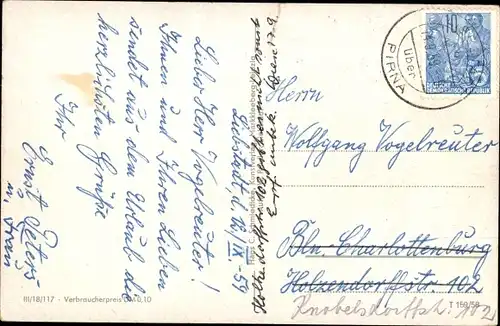 Liebstadt, d. 12. IX. 59
Lieber Herr Vogelreuter!
Ihnen und Ihren Lieben
sendet aus dem Urlaub die
herzlichsten Grüße
Ihr
Ernst Peters
u. Frau
Holzendorffstr. 102
PIRNA
über
10
DEUTSCHE DEMOKRATISCHE REPUBLIK
Herrn
Wolfgang Vogelreuter
Bln.-Charlottenburg
Holzendorffstr. 102
Knobelsdorffstr. 102
III/18/117 - Verbraucherpreis DM 0,10
T 169/58